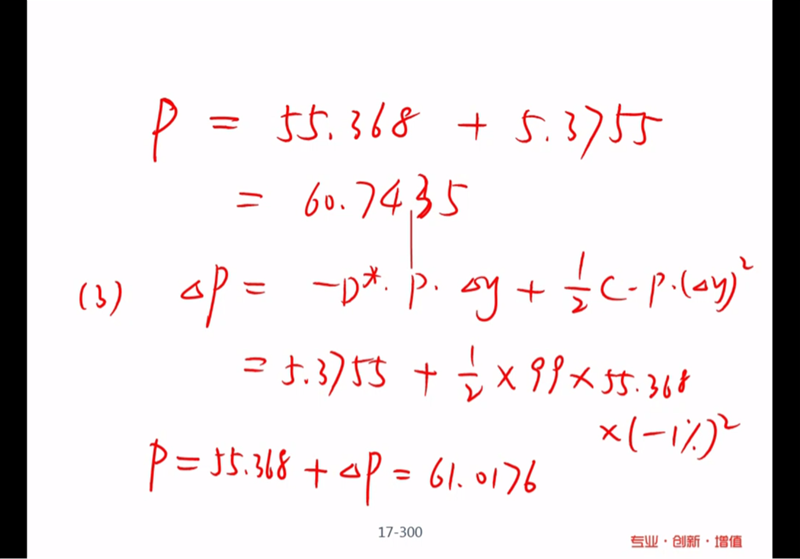 P = 55.368 + 5.3755
= 60.7435
(3) ΔP = -D*· P · Δy + 1/2 C · P · (Δy)²
= 5.3755 + 1/2 × 99 × 55.368
× (-1%)²
P = 55.368 + ΔP = 61.0176
17-300
专业·创新·增值